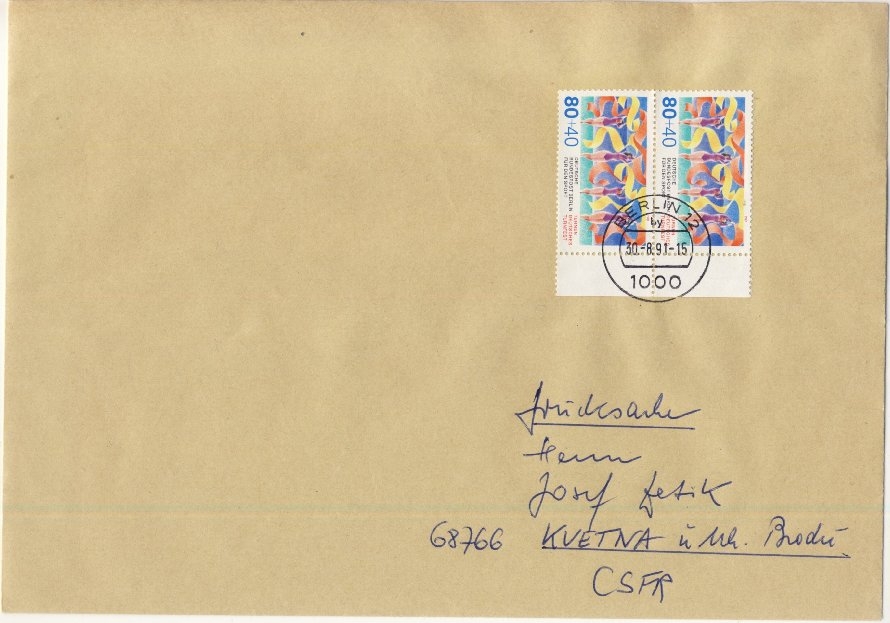 80+40
DEUTSCHE
BUNDESPOST BERLIN
FÜR DEN SPORT
TURNEN
DEUTSCHES
TURNFEST
80+40
DEUTSCHE
BUNDESPOST
FÜR DEN SPORT
BERLIN 12
by
30.-8.91-15
1000
Drucksache
Herrn
Josef
68766 KVETNA u Uh. Brodu
CSFR